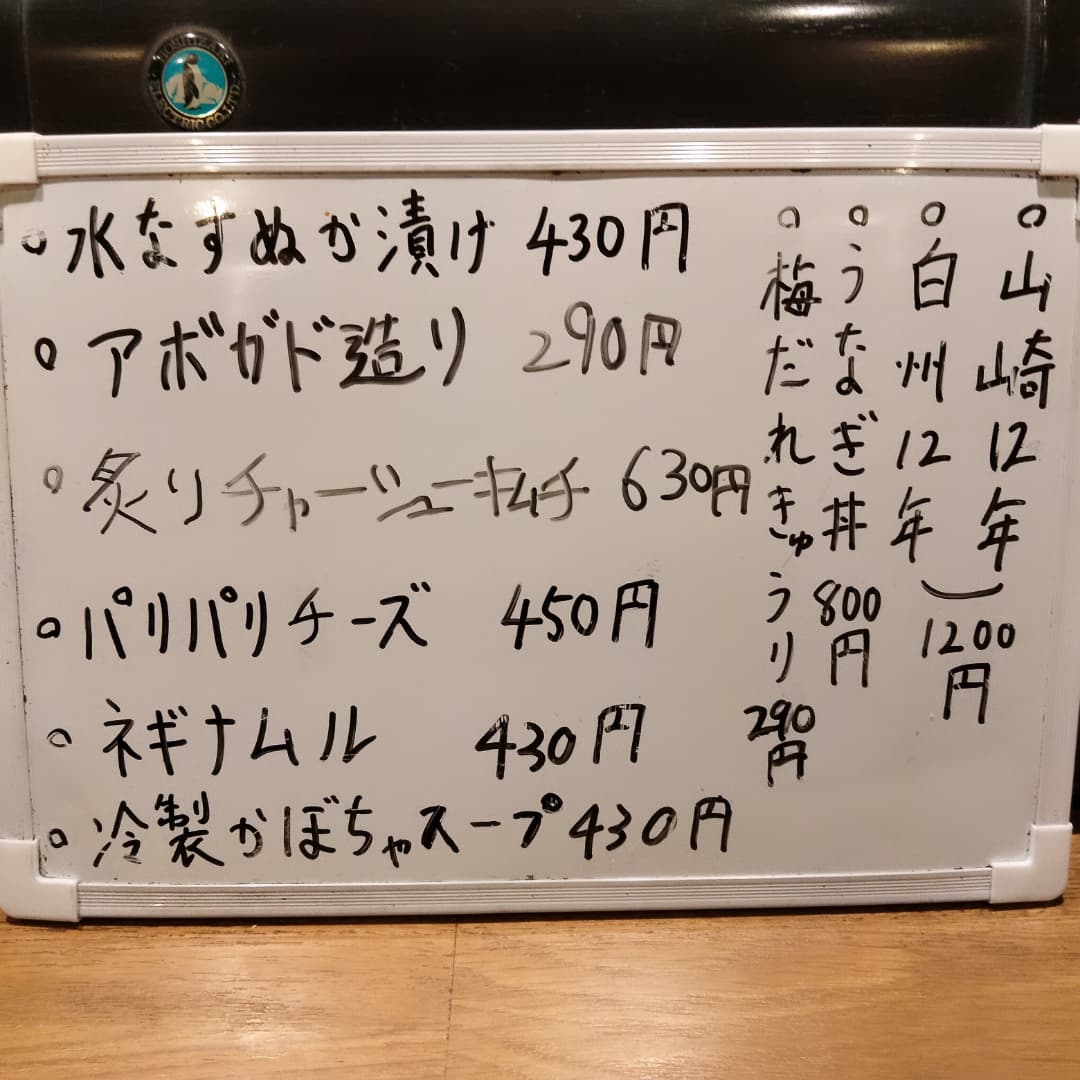 HOSHIZAKI
ELECTRIC CO.,LTD.
○水なすぬか漬け 430円
○アボガド造り 290円
○炙りチャーシューキムチ 630円
○パリパリチーズ 450円
○ネギナムル 430円
○冷製かぼちゃスープ 430円
○山崎12年
○白州12年
1200円
○うなぎ丼 800円
○梅だれきゅうり 290円